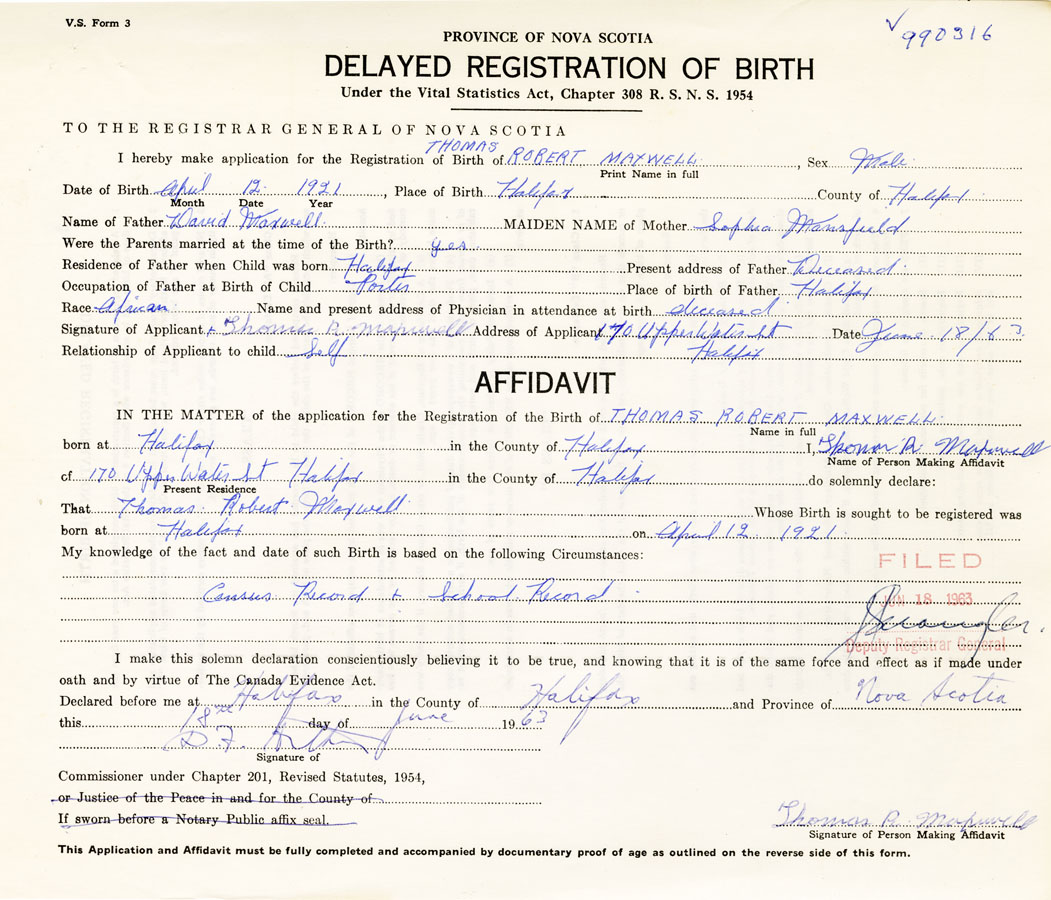 V.S. Form 3
√ 990316
PROVINCE OF NOVA SCOTIA
DELAYED REGISTRATION OF BIRTH
Under the Vital Statistics Act, Chapter 308 R. S. N. S. 1954
TO THE REGISTRAR GENERAL OF NOVA SCOTIA
THOMAS
I hereby make application for the Registration of Birth of ROBERT MAXWELL, Sex Male
Print Name in full
Date of Birth April 12 1921, Place of Birth Halifax County of Halifax
Month Date Year
Name of Father David Maxwell MAIDEN NAME of Mother Sophia Mansfield
Were the Parents married at the time of the Birth? yes
Residence of Father when Child was born Halifax Present address of Father Deceased
Occupation of Father at Birth of Child Porter Place of birth of Father Halifax
Race African Name and present address of Physician in attendance at birth deceased
Signature of Applicant x Thomas R. Maxwell Address of Applicant 170 Upper Water St Date June 18/63
Relationship of Applicant to child Self Halifax
AFFIDAVIT
IN THE MATTER of the application for the Registration of the Birth of THOMAS ROBERT MAXWELL
Name in full
born at Halifax in the County of Halifax I, Thomas R. Maxwell
Name of Person Making Affidavit
of 170 Upper Water St Halifax in the County of Halifax do solemnly declare:
Present Residence
That Thomas Robert Maxwell Whose Birth is sought to be registered was
born at Halifax on April 12 1921
My knowledge of the fact and date of such Birth is based on the following Circumstances:
FILED
Census Record + School Record
JUN 18 1963
Deputy Registrar General
I make this solemn declaration conscientiously believing it to be true, and knowing that it is of the same force and effect as if made under
oath and by virtue of The Canada Evidence Act.
Declared before me at Halifax in the County of Halifax and Province of Nova Scotia
this 18th day of June 1963
D.F.
Signature of
Commissioner under Chapter 201, Revised Statutes, 1954,
or Justice of the Peace in and for the County of
If sworn before a Notary Public affix seal.
Thomas R. Maxwell
Signature of Person Making Affidavit
This Application and Affidavit must be fully completed and accompanied by documentary proof of age as outlined on the reverse side of this form.